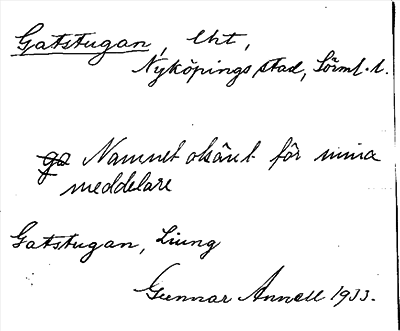 Gatstugan, lht,
Nyköpings stad, Sörml. l.
Namnet okänt för mina
meddelare
Gatstugan, Liung
Gunnar Annell 1933.